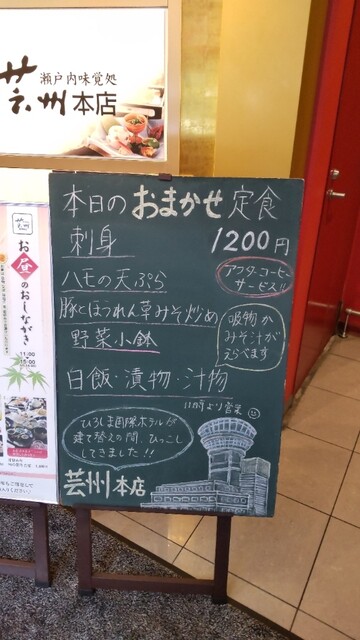 瀬戸内味覚処
芸州本店
本日のおまかせ定食
刺身
1200円
ハモの天ぷら
アフターコーヒー
サービス!!
豚とほうれん草みそ炒め
野菜小鉢
吸物か
みそ汁が
えらべます
白飯・漬物・汁物
11時より営業
ひろしま国際ホテルが
建て替えの間、ひっこし
してきました!!
芸州本店
お昼のおしながき
11:00
15:00